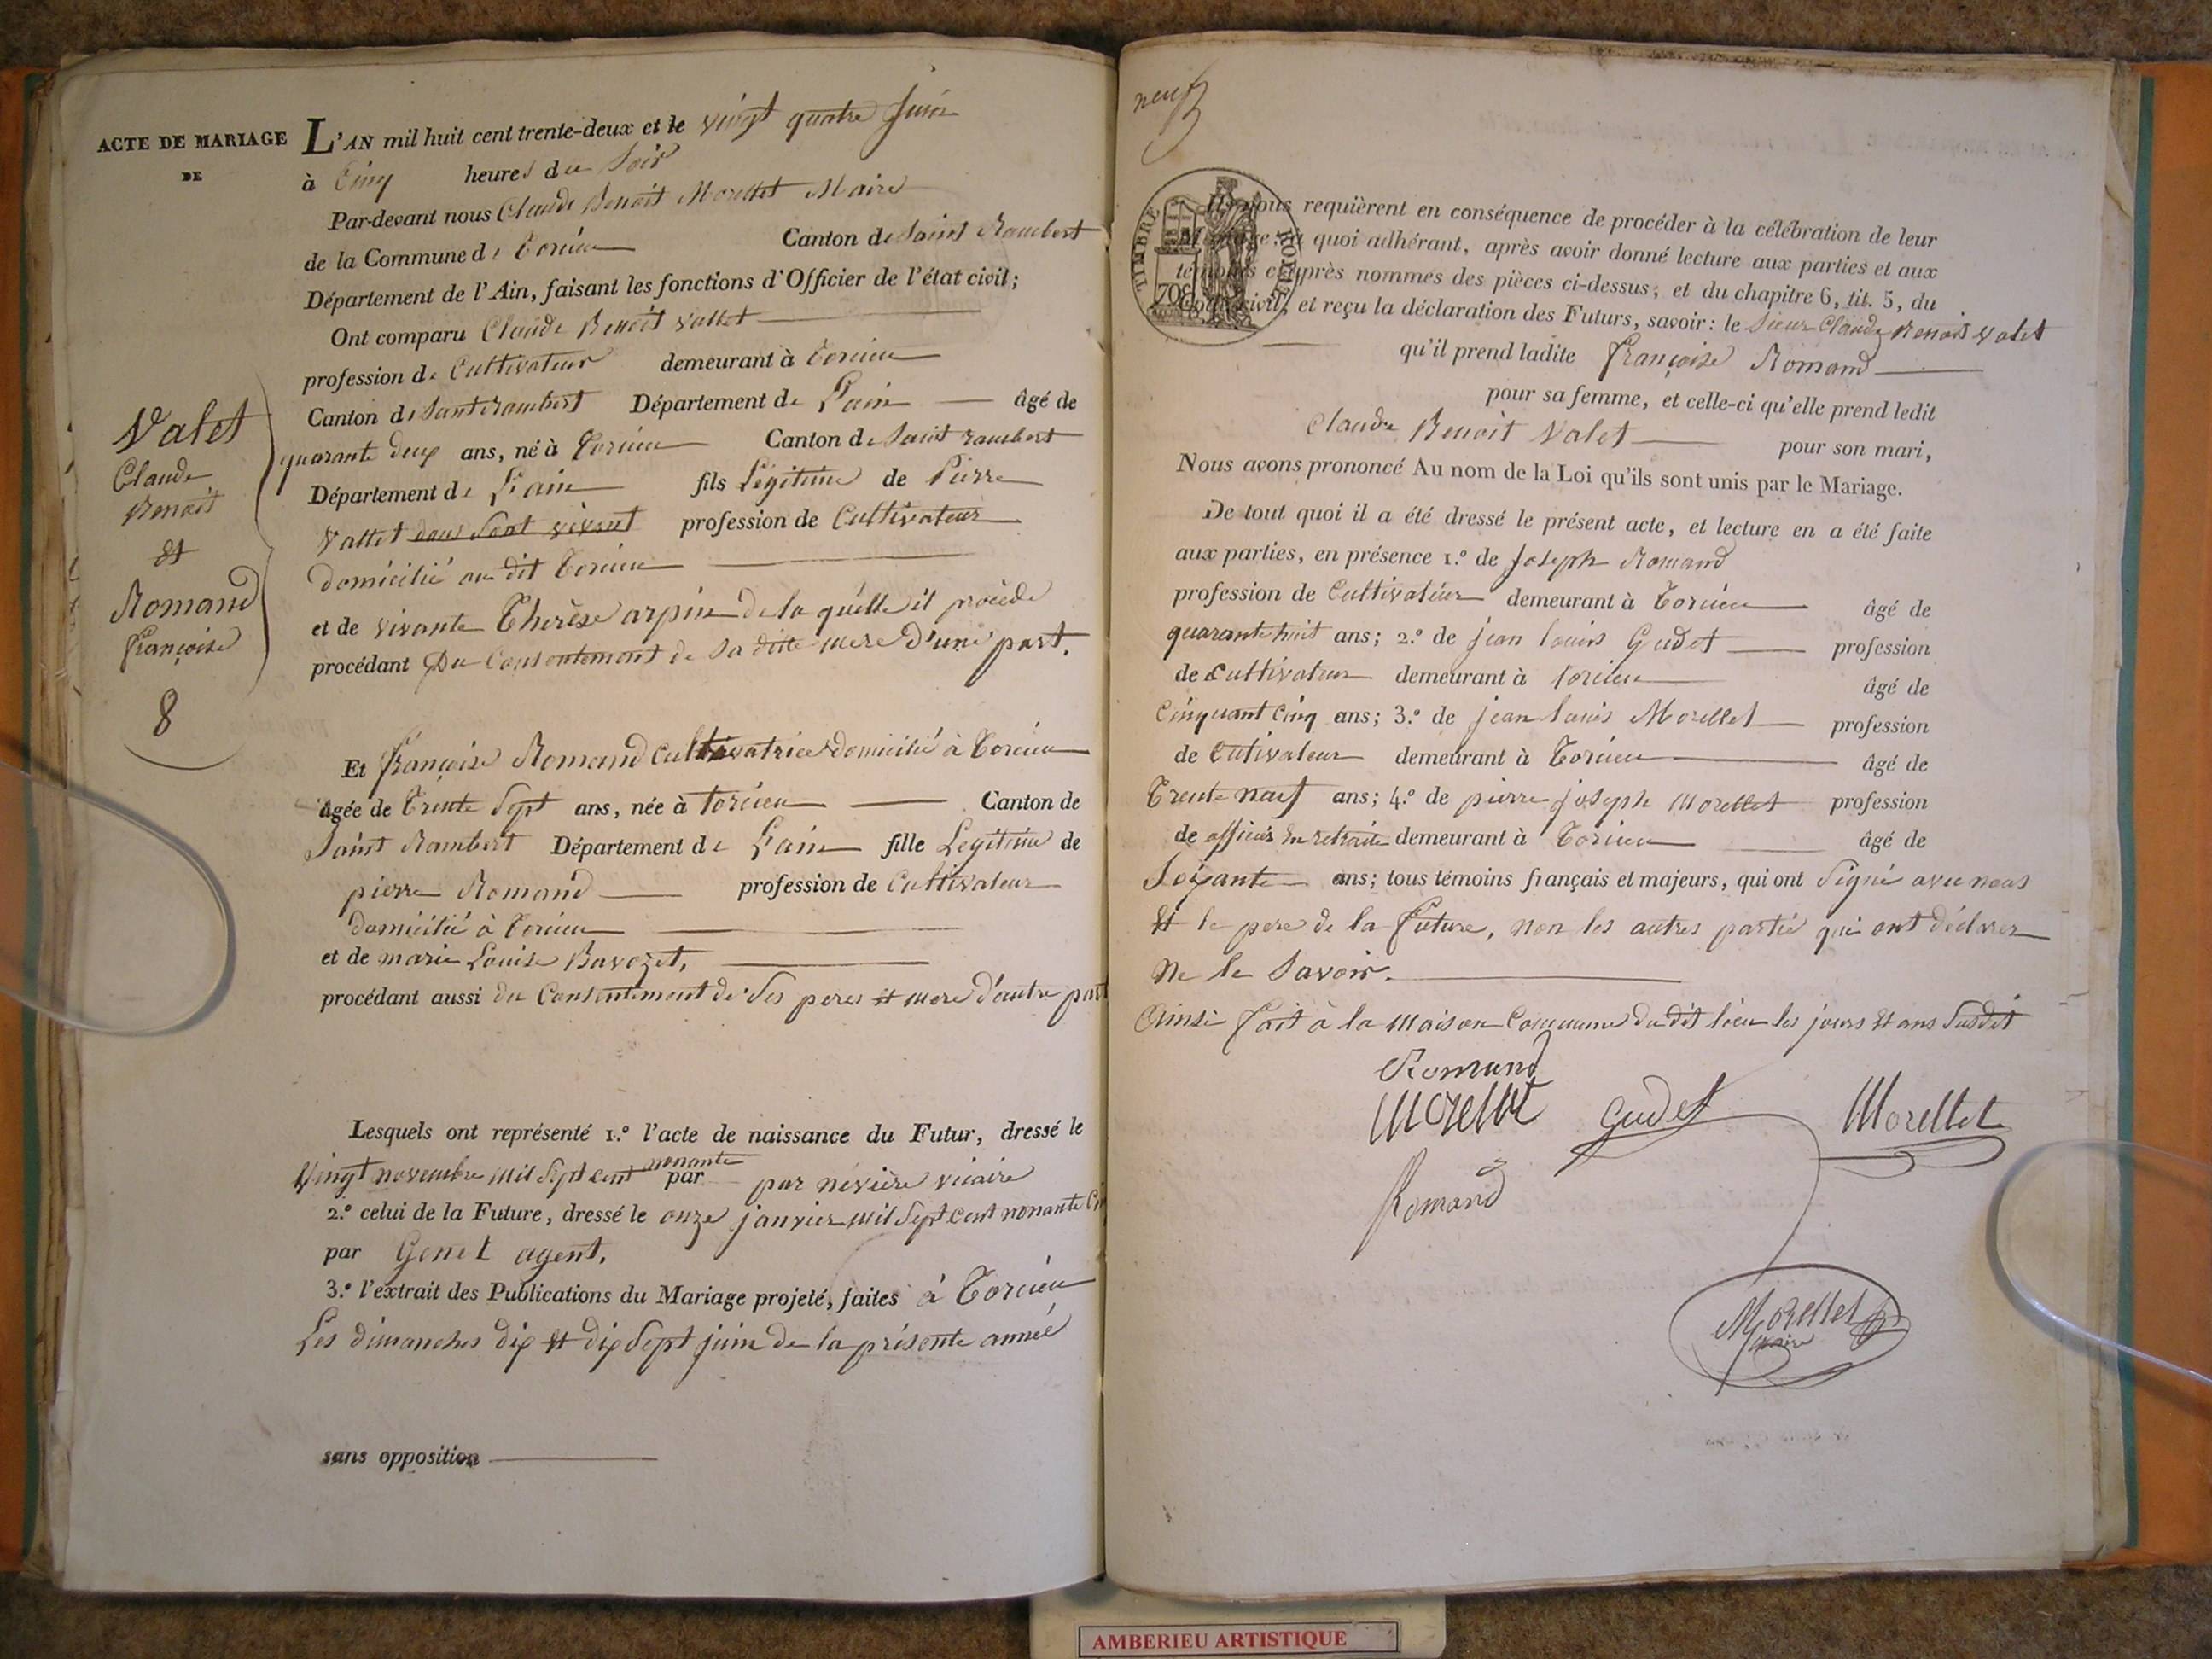 ACTE DE MARIAGE
DE
Valet
Claude
Benoit
et
Romand
françoise
8
L'AN mil huit cent trente-deux et le vingt quatre Juin
à Cinq heures du Soir
Par-devant nous Claude Benoit Morellet Maire
de la Commune de Torcieu Canton de Saint Rambert
Département de l'Ain, faisant les fonctions d'Officier de l'état civil;
Ont comparu Claude Benoit Vallet
profession de Cultivateur demeurant à Torcieu
Canton de Saint rambert Département de L'ain âgé de
quarante deux ans, né à Torcieu Canton de Saint rambert
Département de L'ain fils Légitime de Pierre
Vallet profession de Cultivateur
domicilié au dit Torcieu
et de vivante Therèse arpin de la quelle il procède
procédant Du Consentement de Sa ditte mere d'une part.
Et françoise Romand Cultivatrice domicilié à Torcieu
âgée de Trente Sept ans, née à Torcieu Canton de
Saint Rambert Département de L'ain fille Légitime de
pierre Romand profession de Cultivateur
domicilié à Torcieu
et de marie Louise Bavozet,
procédant aussi du Consentement de Ses peres et mere d'autre part
Lesquels ont représenté 1.º l'acte de naissance du Futur, dressé le
Vingt novembre mil Sept cent nonante par par névière vicaire
2.º celui de la Future, dressé le onze janvier mil Sept Cent nonante
par Genet agent.
3.º l'extrait des Publications du Mariage projeté, faites à Torcieu
Les dimanches dix et dix Sept juin de la présente année
sans opposition
neuf
TIMBRE ROYAL
70c
Ils nous requièrent en conséquence de procéder à la célébration de leur
Mariage; à quoi adhérant, après avoir donné lecture aux parties et aux
témoins ci-après nommés des pièces ci-dessus, et du chapitre 6, tit. 5, du
Code civil, et reçu la déclaration des Futurs, savoir: le Sieur Claude Benoit Valet
qu'il prend ladite Françoise Romand
pour sa femme, et celle-ci qu'elle prend ledit
Claude Benoit Valet pour son mari,
Nous avons prononcé Au nom de la Loi qu'ils sont unis par le Mariage.
De tout quoi il a été dressé le présent acte, et lecture en a été faite
aux parties, en présence 1.º de Joseph Romand
profession de Cultivateur demeurant à Torcieu âgé de
quarante huit ans; 2.º de jean louis Gudet profession
de Cultivateur demeurant à Torcieu âgé de
Cinquant Cinq ans; 3.º de jean louis Morellet profession
de Cutivateur demeurant à Torcieu âgé de
Trente neuf ans; 4.º de pierre joseph Morellet profession
de officier en retraite demeurant à Torcieu âgé de
Soixante ans; tous témoins français et majeurs, qui ont Signé avec nous
et le pere de la Future, non les autres partie qui ont déclarer
ne le Savoir.
Ainsi fait à la maison Commune du dit lieu les jours et ans Susdit
Romand
Morellet Gudet Morellet
Romand
Morellet
maire
AMBERIEU ARTISTIQUE